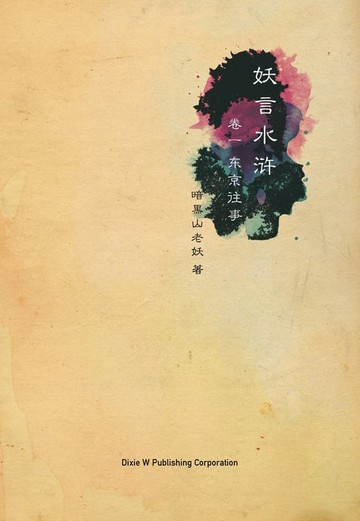 妖言水浒
卷一 东京往事
暗黑山老妖 著
Dixie W Publishing Corporation